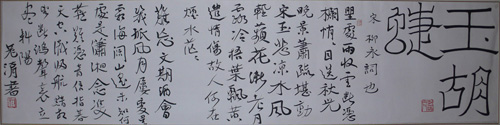 玉胡
蝶
宋 柳永詞也
望處雨收雲斷憑
欄悄悄目送秋光
晚景蕭疏堪動
宋玉悲涼水風
輕蘋花漸老月
露冷梧葉飄黃
遣情傷故人何在
煙水茫茫
難忘文期酒會
幾孤風月屢變星
霜海闊山遙未知何
處是瀟湘念雙
燕難憑遠信指暮
天空識歸航黯相
望斷鴻聲裏立
盡斜陽